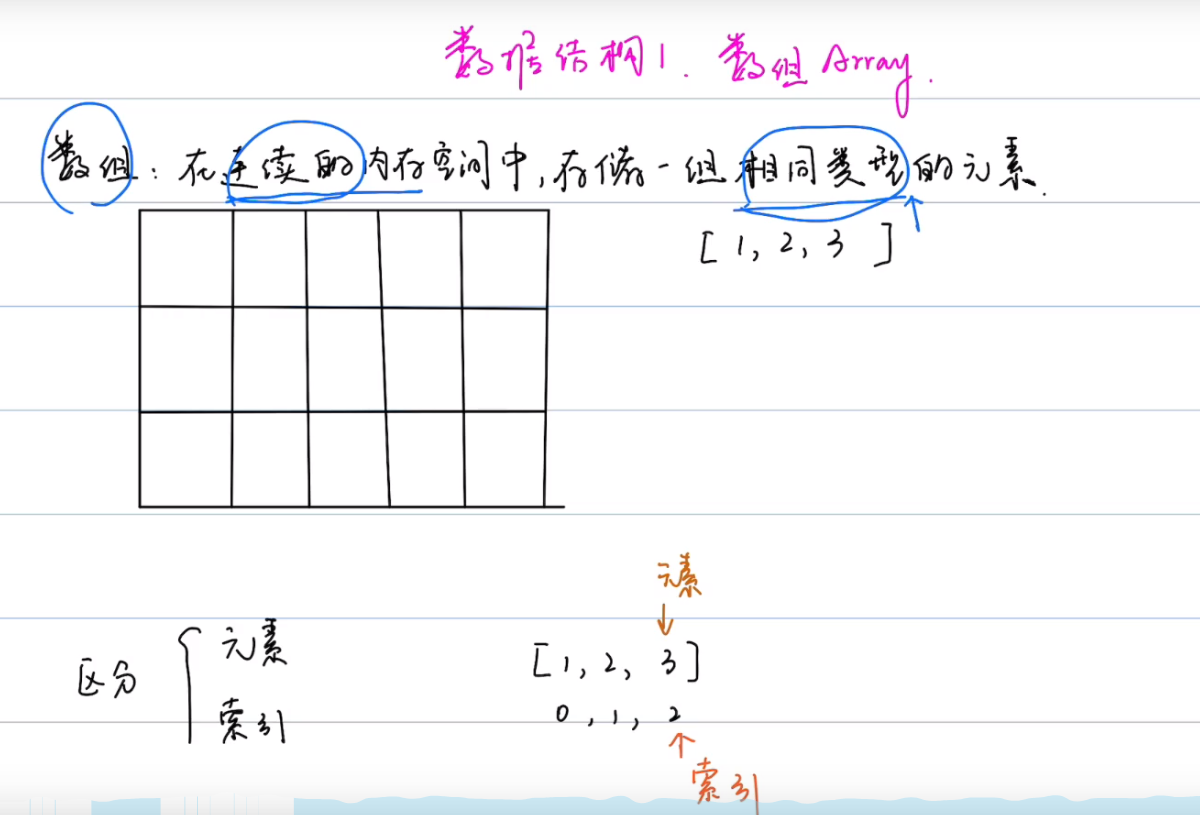 数据结构1. 数组 Array.
数组: 在连续的内存空间中,存储一组相同类型的元素.
[1, 2, 3 ]
元素
区分 { 元素
[1, 2, 3]
索引
0, 1, 2
索引